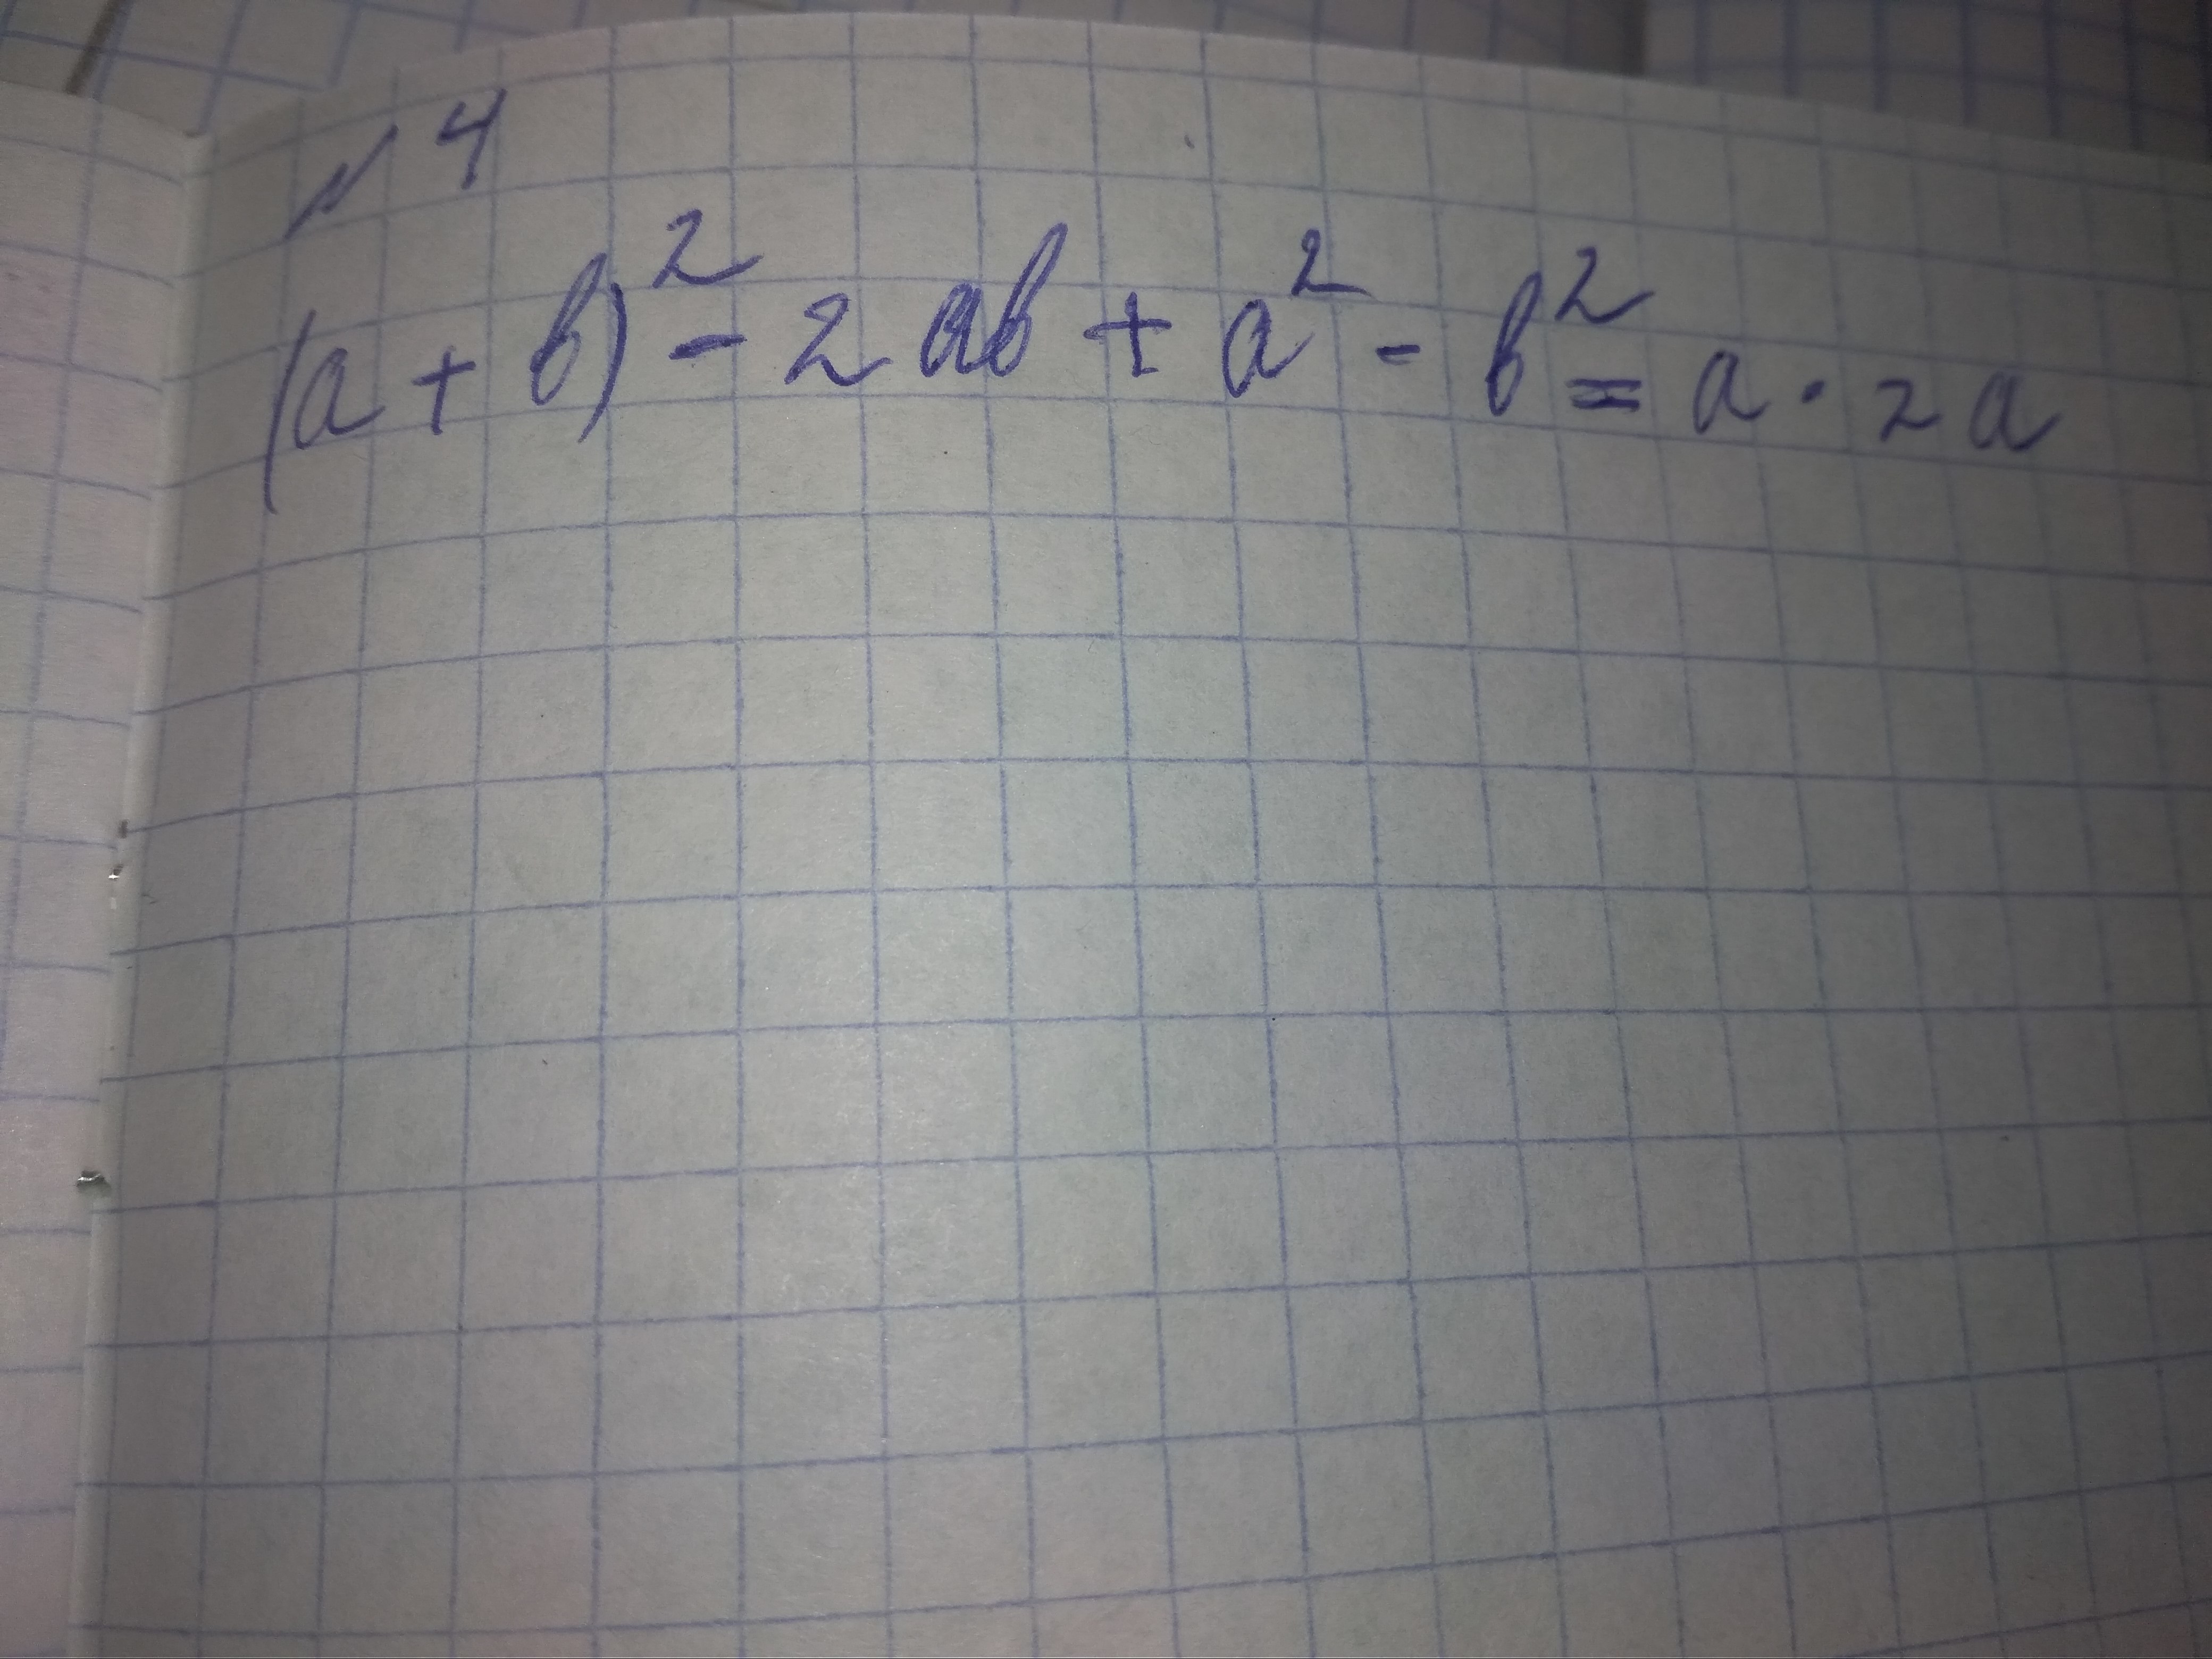 № 4
(a + b)² - 2ab + a² - b² = a · 2a